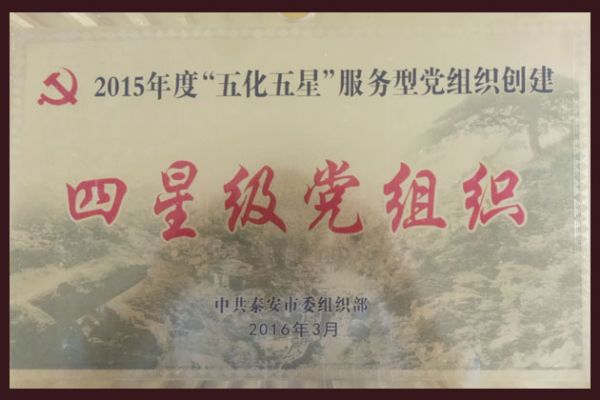 2015年度“五化五星”服务型党组织创建
四星级党组织
中共泰安市委组织部
2016年3月